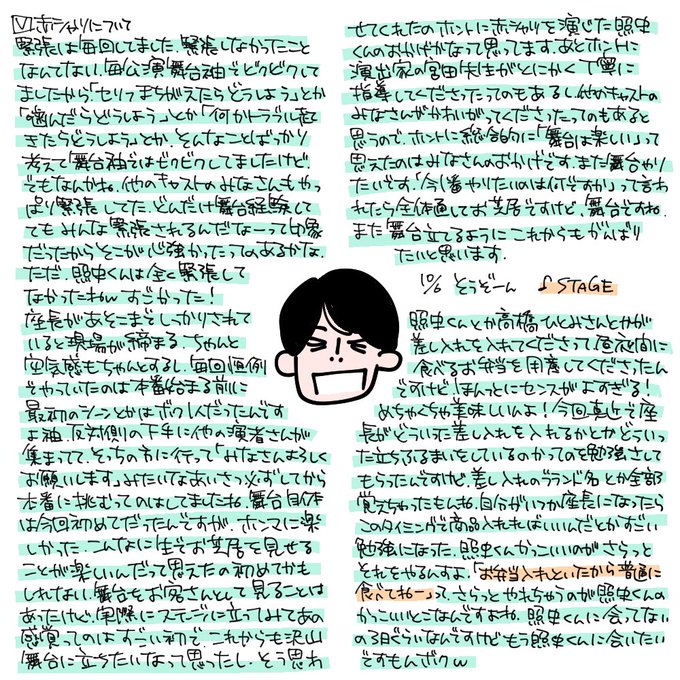 ☑赤シャツについて
緊張は毎回してました.緊張しなかったこと
なんてない.毎公演舞台袖でビクビクして
ましたから.「セリフまちがえたらどうしよう」とか
「噛んだらどうしよう」とか「何かトラブル起
きたらどうしよう」とか.そんなことばっかり
考えて舞台袖ではビクビクしてましたけど.
でもなんかね.他のキャストのみなさんもやっ
ぱり緊張してた.どんだけ舞台経験して
てもみんな緊張されるんだなーって印象
だったからそこが心強かったってのあるかな.
ただ.照史くんは全く緊張して
なかったねw すごかった!
座長があそこまでしっかりされて
いると現場が締まる.ちゃんと
空気感もちゃんとするし.毎回恒例
でやっていたのは本番始まる前に
最初のシーンとかはボク1人だったんです
よ袖.反対側の下手に他の演者さんが
集まってて.そっちの方に行って「みなさんよろしく
お願いします」みたいなあいさつ必ずしてから
本番に挑むってのはしてましたね.舞台自体
は今回初めてだったんですが.ホンマに楽
しかった.こんなに生でお芝居を見せる
ことが楽しいんだって思えたの初めてかも
しれない.舞台をお客さんとして見ることは
あったけど.実際にステージに立ってみてあの
感覚ってのはすごい初で.これからも沢山
舞台に立ちたいなって思ったし.そう思わ
せてくれたのホントに赤シャツを演じた照史
くんのおかげかなって思ってます.あとホントに
演出家の宮田先生がとにかく丁寧に
指導してくださったってのもあるし.他のキャストの
みなさんがかわいがってくださったってのもあると
思うので.ホントに総合的に「舞台は楽しい」って
思えたのはみなさんのおかげです.また舞台やり
たいです.「今1番やりたいのは何ですか」って言わ
れたら全体通してお芝居ですけど.舞台ですね.
また舞台立てるようにこれからもがんばり
たいと思います.
10/6 とぅぞーん ♪STAGE
照史くんとか高橋ひとみさんとかが
差し入れを入れてくださって昼夜間に
食べるお弁当を用意してくださったん
ですけど.ほんっとにセンスがよすぎる!
めちゃくちゃ美味しいんよ!今回真近で座
長がどういった差し入れを入れるかとかどういっ
た立ちふるまいをしているのかってのを勉強させて
もらったんですけど.差し入れのブランド名とか全部
覚えちゃったもんね.自分がいつか座長になったら
このタイミングで商品入れればいいんだとかすごい
勉強になった.照史くんかっこいいのがさらっと
それをやるんすよ.「お弁当入れといたから普通に
食べてねー」って.さらっとやれちゃうのが照史くんの
かっこいいとこなんですよね.照史くんに会ってない
の3日ぐらいなんですけどもう照史くんに会いたい
ですもんボクw